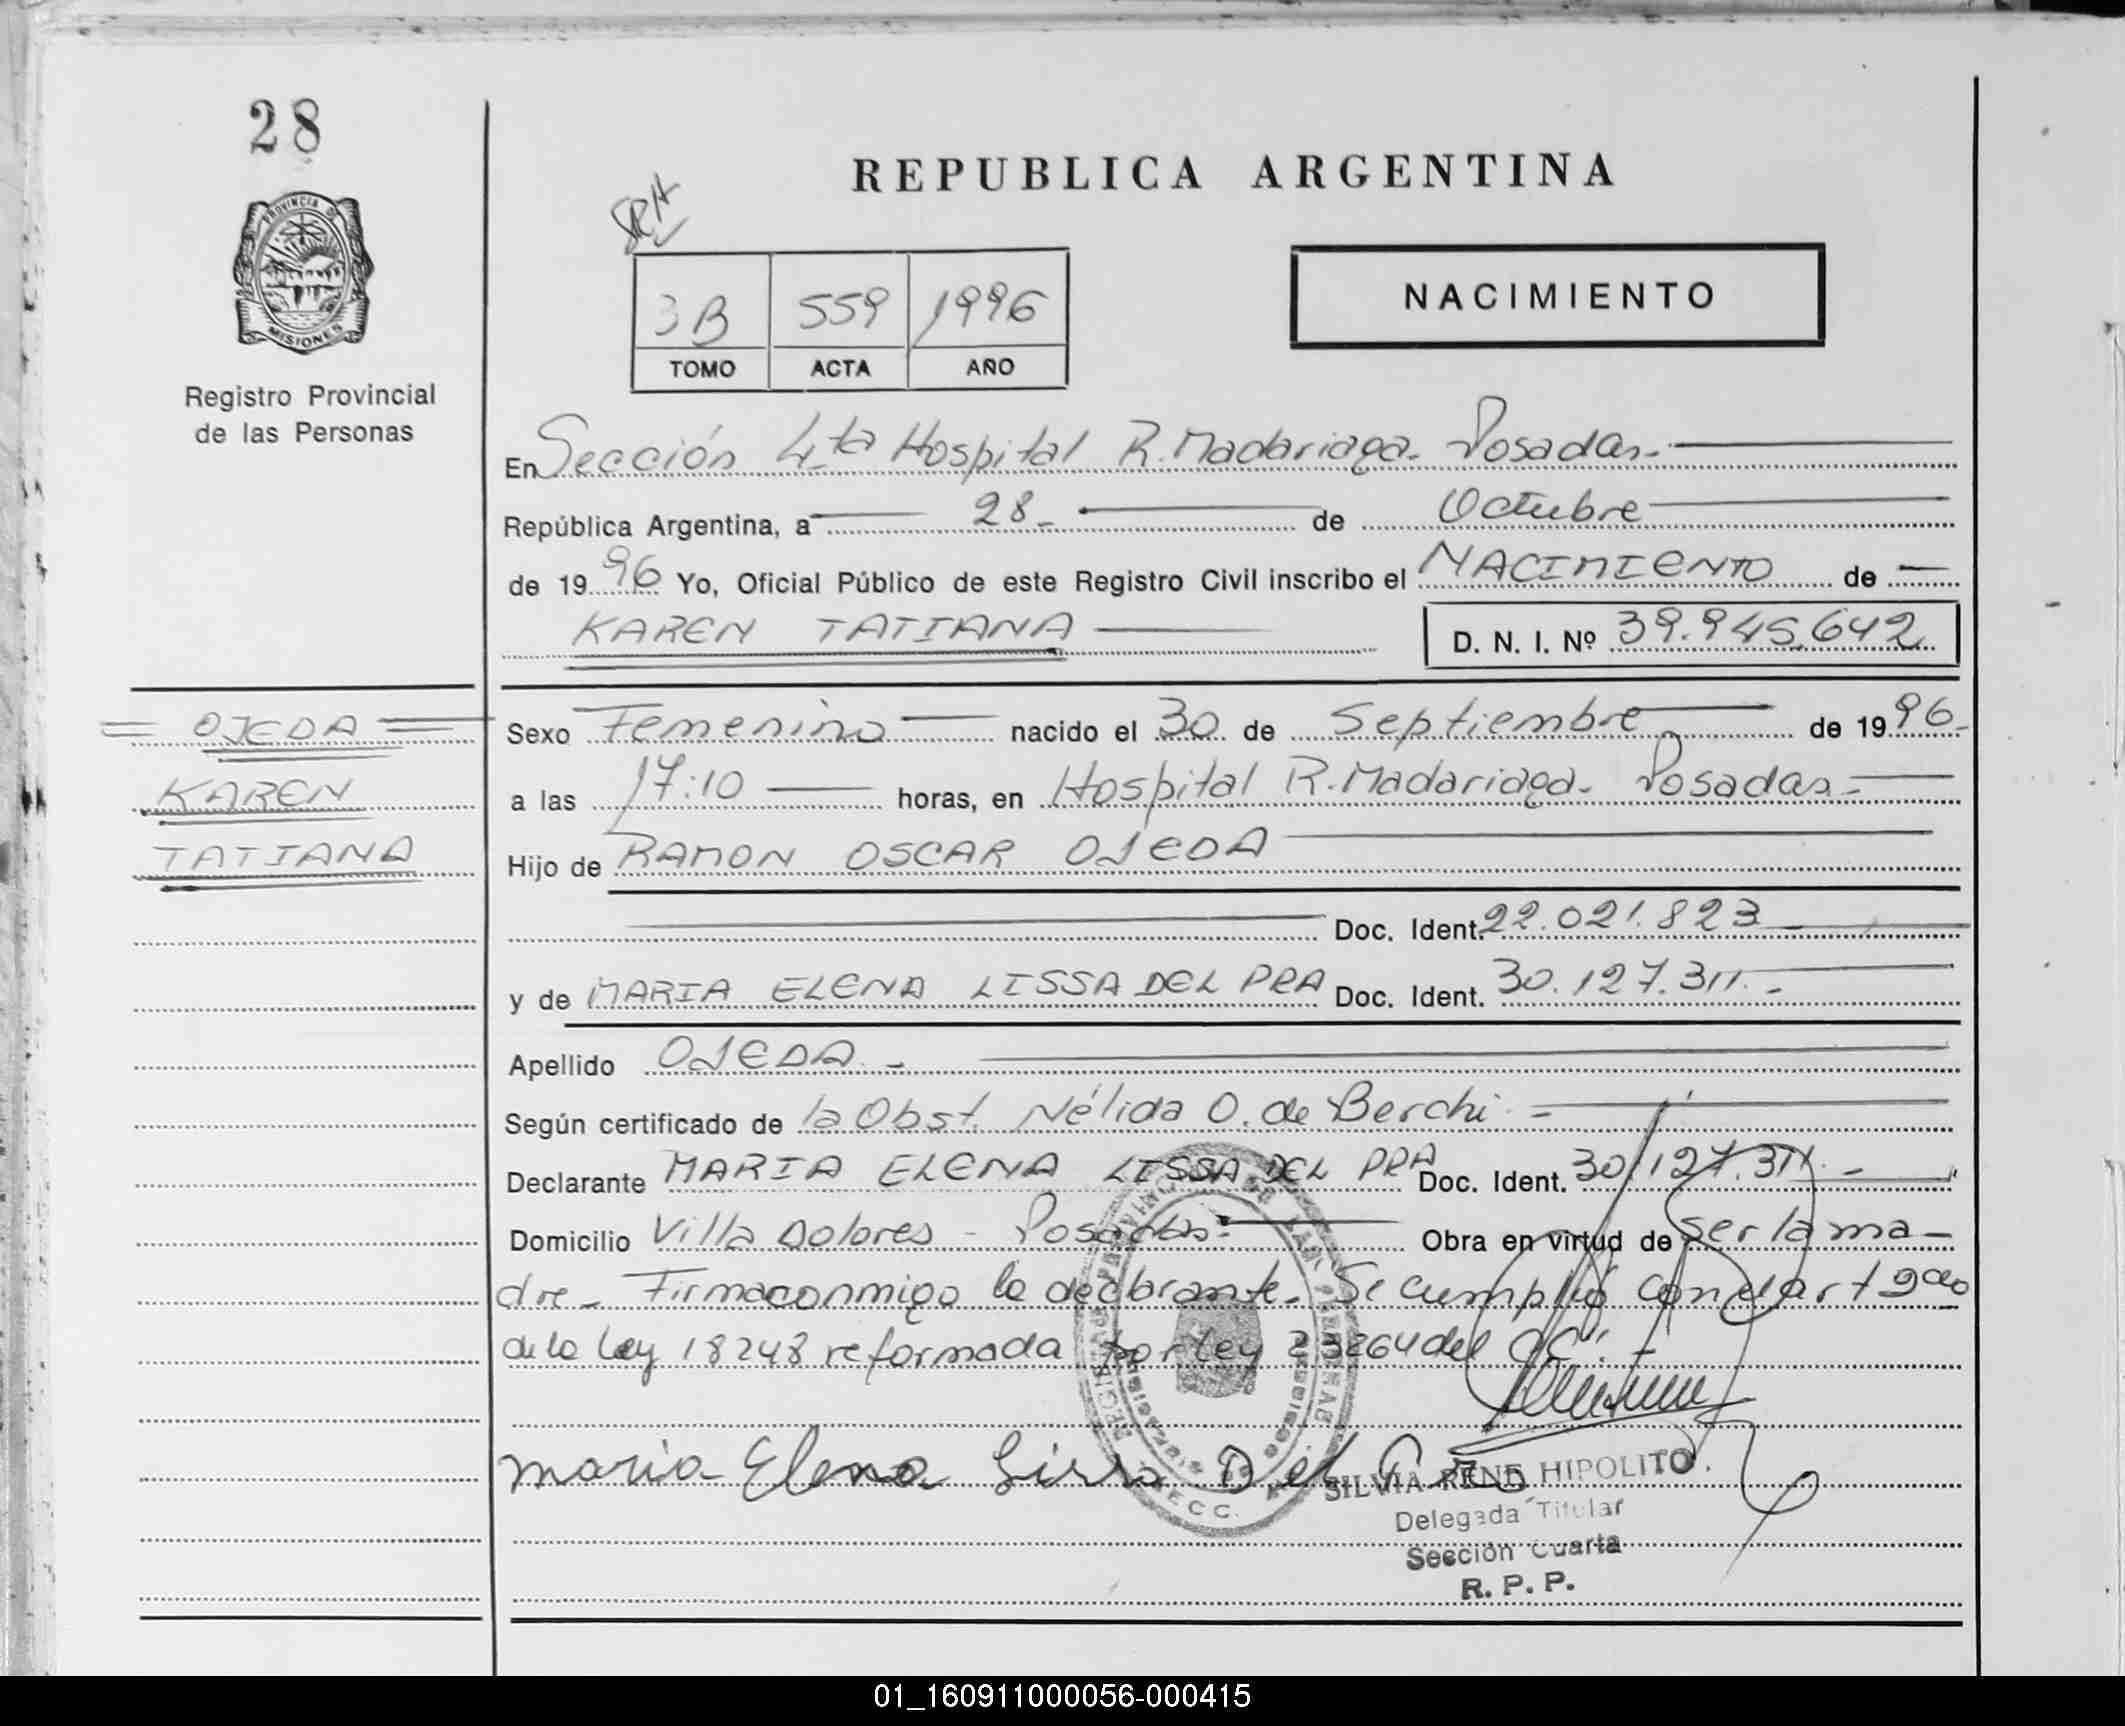 28
PROVINCIA DE
MISIONES
Registro Provincial
de las Personas
REPUBLICA ARGENTINA
3B 559 1996
TOMO ACTA AÑO
NACIMIENTO
En Sección 4ta Hospital R. Madariaga. Posadas.
República Argentina, a 28 de Octubre
de 1996 Yo, Oficial Público de este Registro Civil inscribo el NACIMIENTO de
KAREN TATIANA D. N. I. Nº 39.945.642
OJEDA
KAREN
TATIANA
Sexo Femenino nacido el 30 de Septiembre de 1996
a las 17:10 horas, en Hospital R. Madariaga. Posadas
Hijo de RAMON OSCAR OJEDA
Doc. Ident. 22.021.823
y de MARIA ELENA LISSA DEL PRA Doc. Ident. 30.127.311.
Apellido OJEDA.
Según certificado de la Obst. Nélida O. de Berchi
Declarante MARIA ELENA LISSA DEL PRA Doc. Ident. 30.127.311.
Domicilio Villa Dolores - Posadas Obra en virtud de ser la ma-
dre - Firma conmigo la declarante. Se cumplió con el art
de la ley 18248 reformada por ley 23264 del CC.
Maria Elena Lissa Del Pra
SILVIA RENE HIPOLITO
Delegada Titular
Sección Cuarta
R. P. P.
01_160911000056-000415